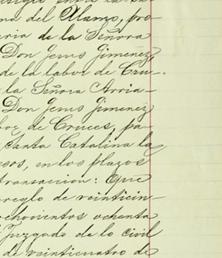 na del Alamo, pro-
ria de la Señora
Don Jesus Jimenez
de la labor de Cru-
la Señora Arria-
Don Jesus Jimenez
bor de Cruces, pa-
Santa Catalina la
cos, en los plazos
transaccion: Que
reglo de veinticin-
ochocientos ochenta
Juzgado de lo civil
de veinticuatro de